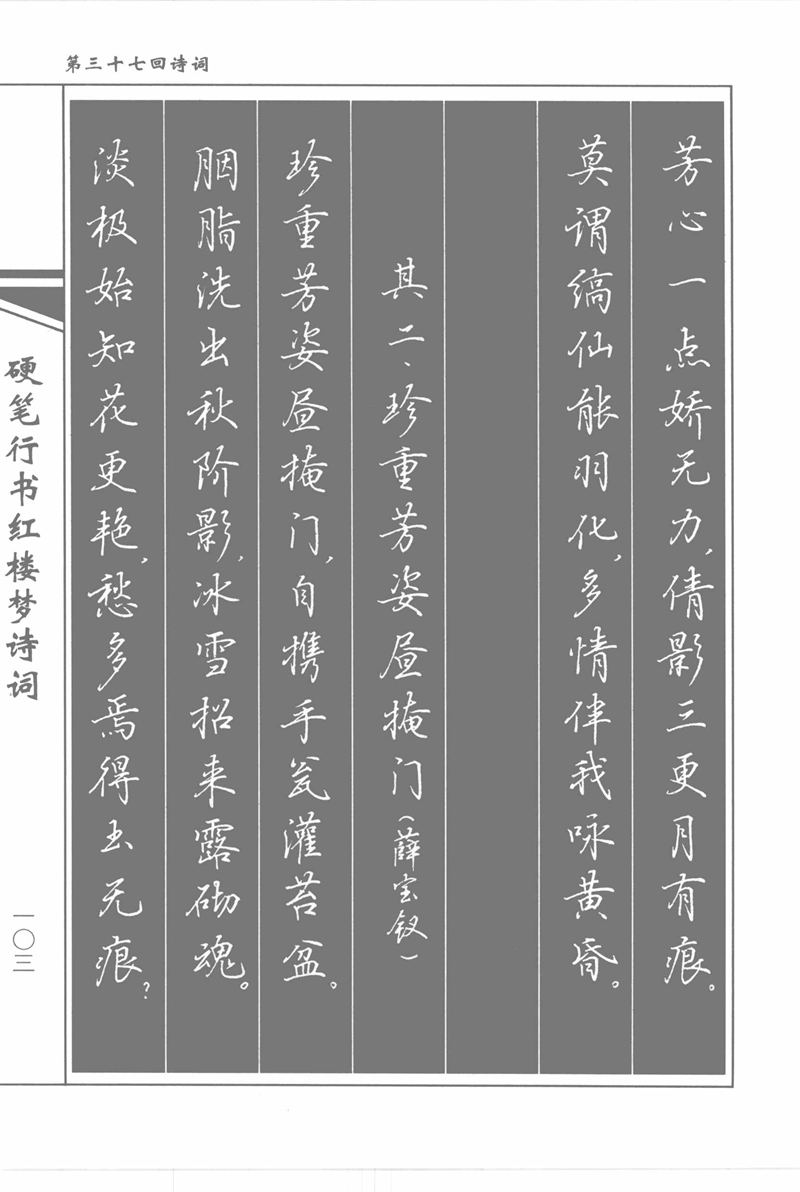 第三十七回诗词
芳心一点娇无力,倩影三更月有痕。
莫谓缟仙能羽化,多情伴我咏黄昏。
其二、珍重芳姿昼掩门(薛宝钗)
珍重芳姿昼掩门,自携手瓮灌苔盆。
胭脂洗出秋阶影,冰雪招来露砌魂。
淡极始知花更艳,愁多焉得玉无痕?
硬笔行书红楼梦诗词
一〇三